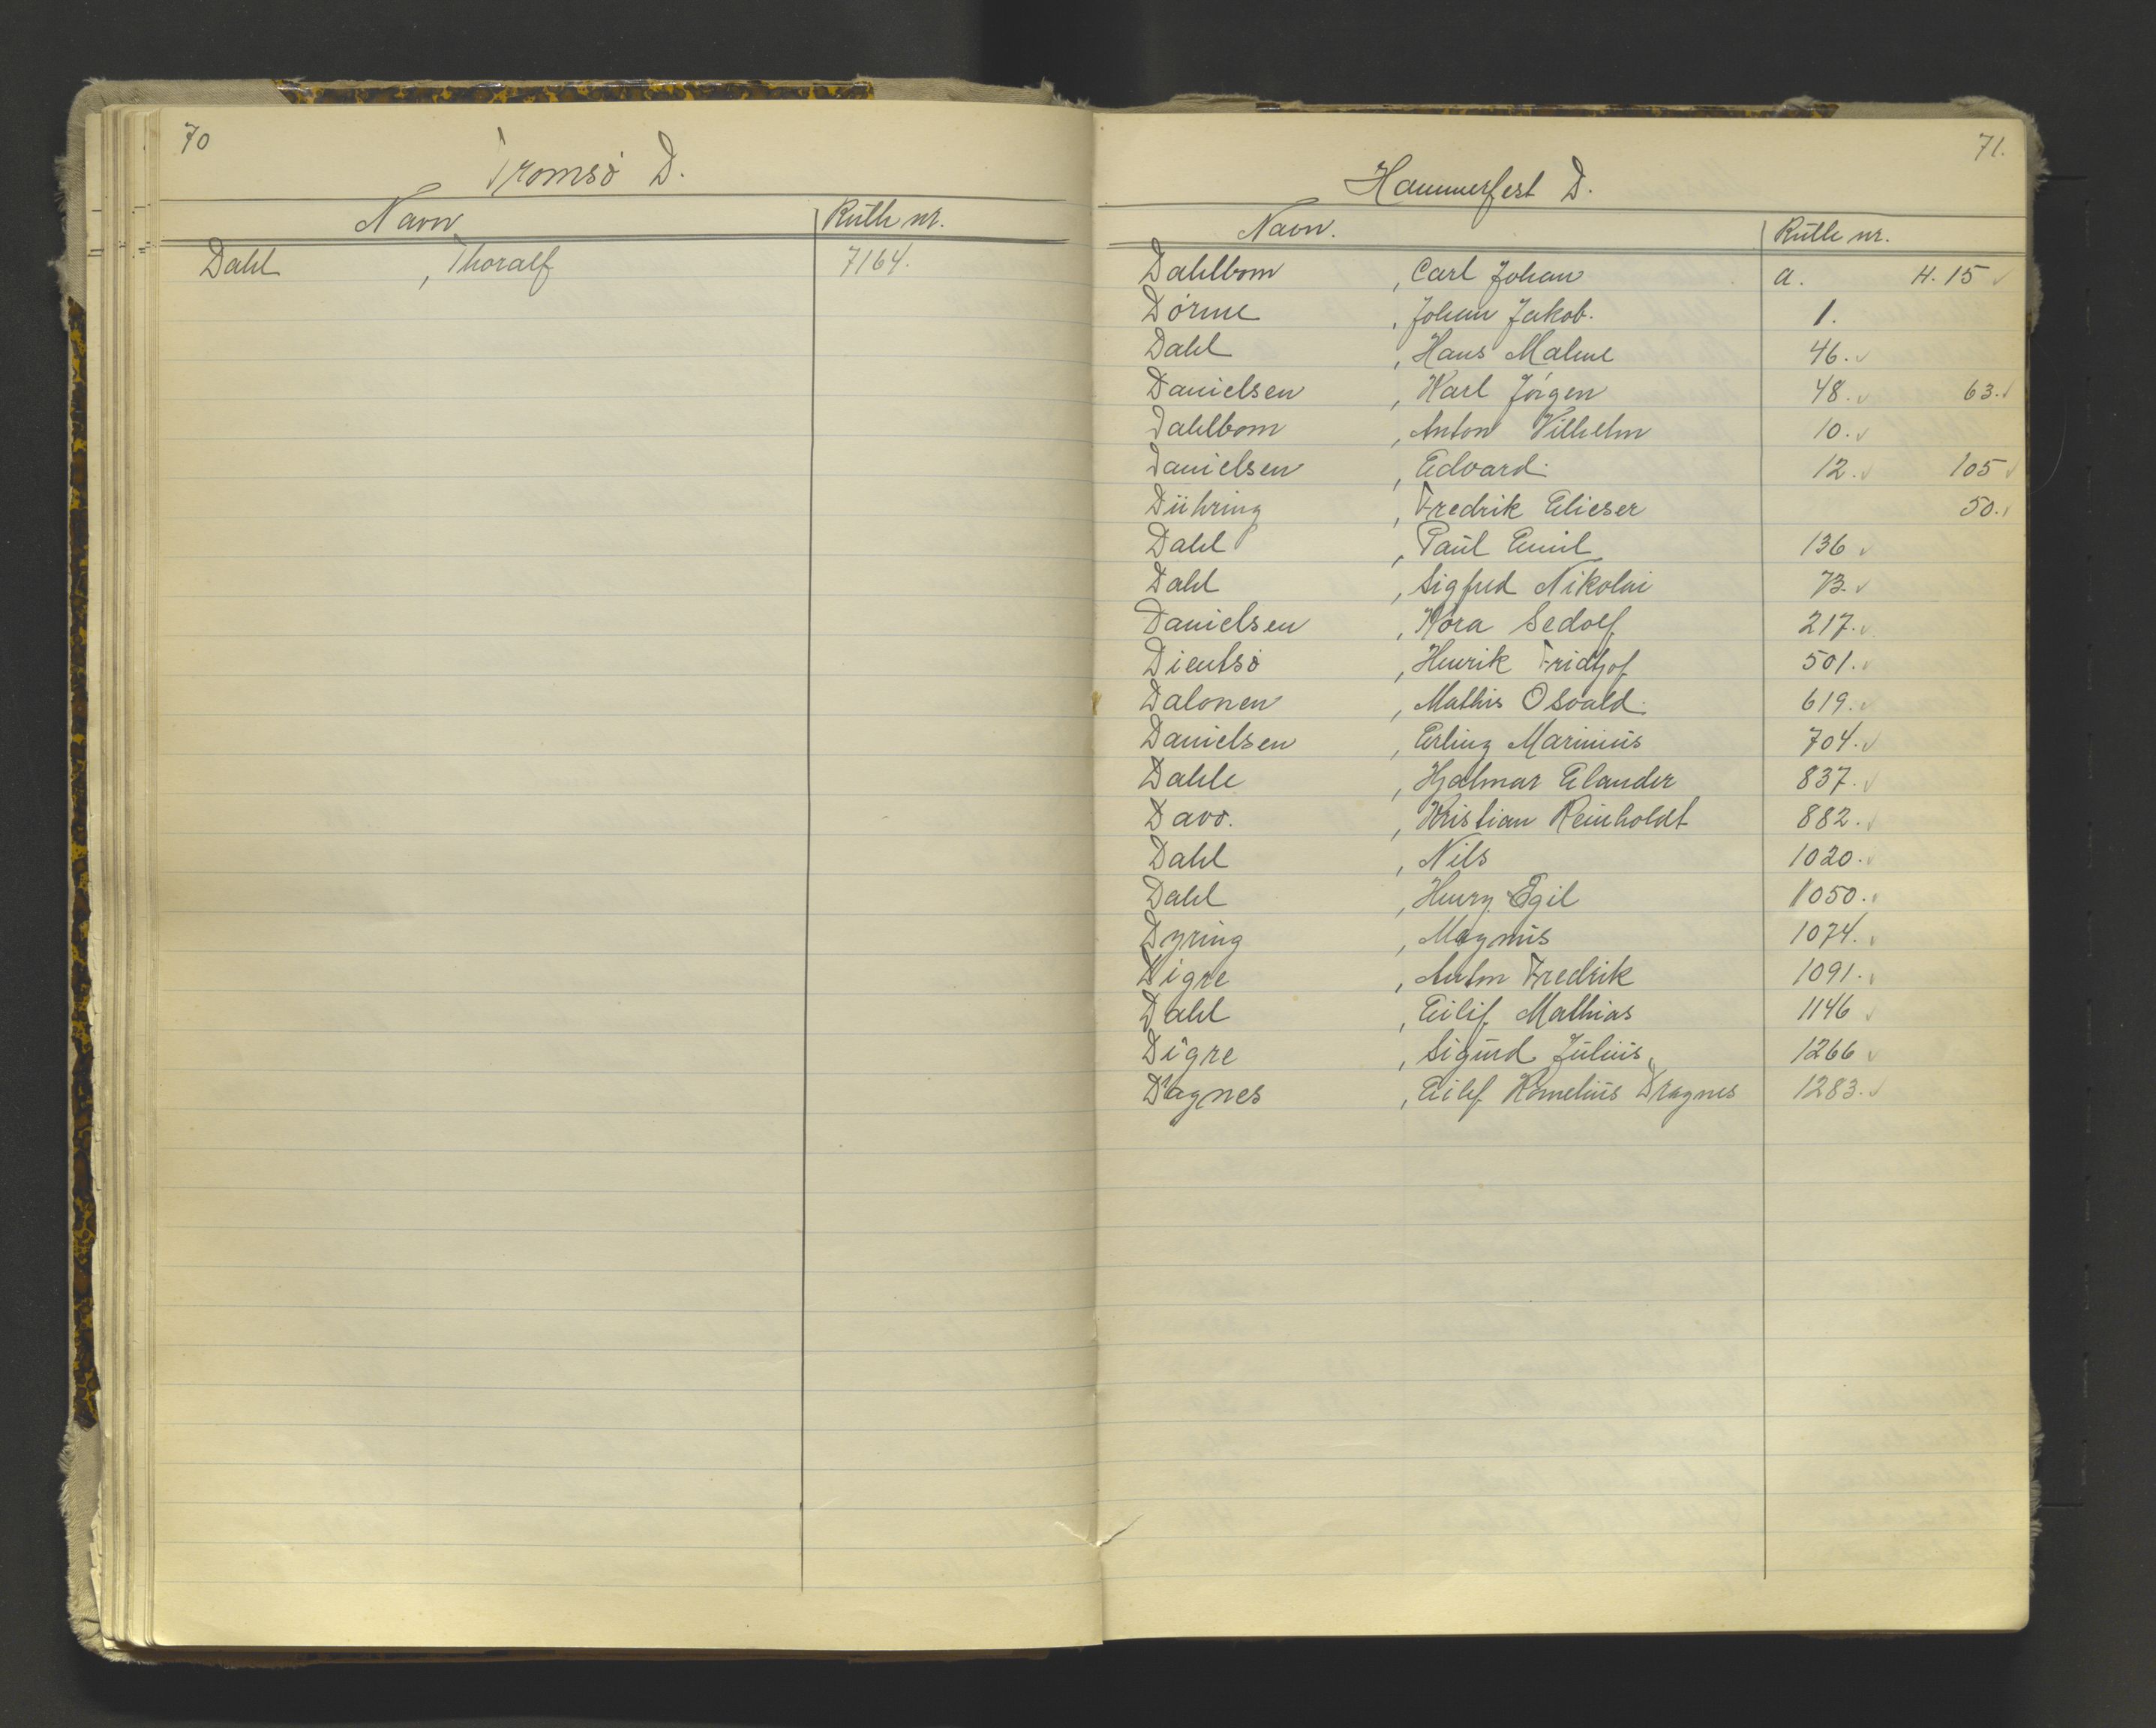 70
Tromsö D.
Navn Rulle nr.
Dahl , Thoralf 7164.
71.
Hammerfest D.
Navn. Rulle nr.
Dahlbom , Carl Johan a. H. 15 ✓
Dörme , Johan Jakob. 1.
Dahl , Hans Malme 46. ✓
Danielsen , Karl Jörgen 48. ✓ 63. ✓
Dahlbom , Anton Vilhelm 10. ✓
Danielsen , Edvard. 12. ✓ 105 ✓
Dühring , Fredrik Elieser 50. ✓
Dahl , Paul Emil 136 ✓
Dahl , Sigfred Nikolai 73. ✓
Danielsen , Kora Sedolf 217. ✓
Dientsö , Henrik Fridtjof 501. ✓
Dalonen , Mathis Osvald. 619. ✓
Danielsen , Erling Marinius 704. ✓
Dahle , Hjalmar Elander 837. ✓
Davo. , Kristian Reinholdt 882. ✓
Dahl , Nils 1020. ✓
Dahl , Henry Egil 1050. ✓
Dyring , Magnus 1074. ✓
Digre , Anton Fredrik 1091. ✓
Dahl , Eilif Mathias 1146 ✓
Digre , Sigurd Julius 1266 ✓
Dagnes , Eilif Kornelius Dragnes 1283. ✓